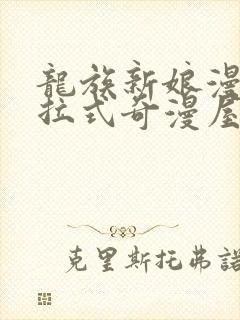 龍族新娘漫
拉式奇漫屋
克里斯托弗諾